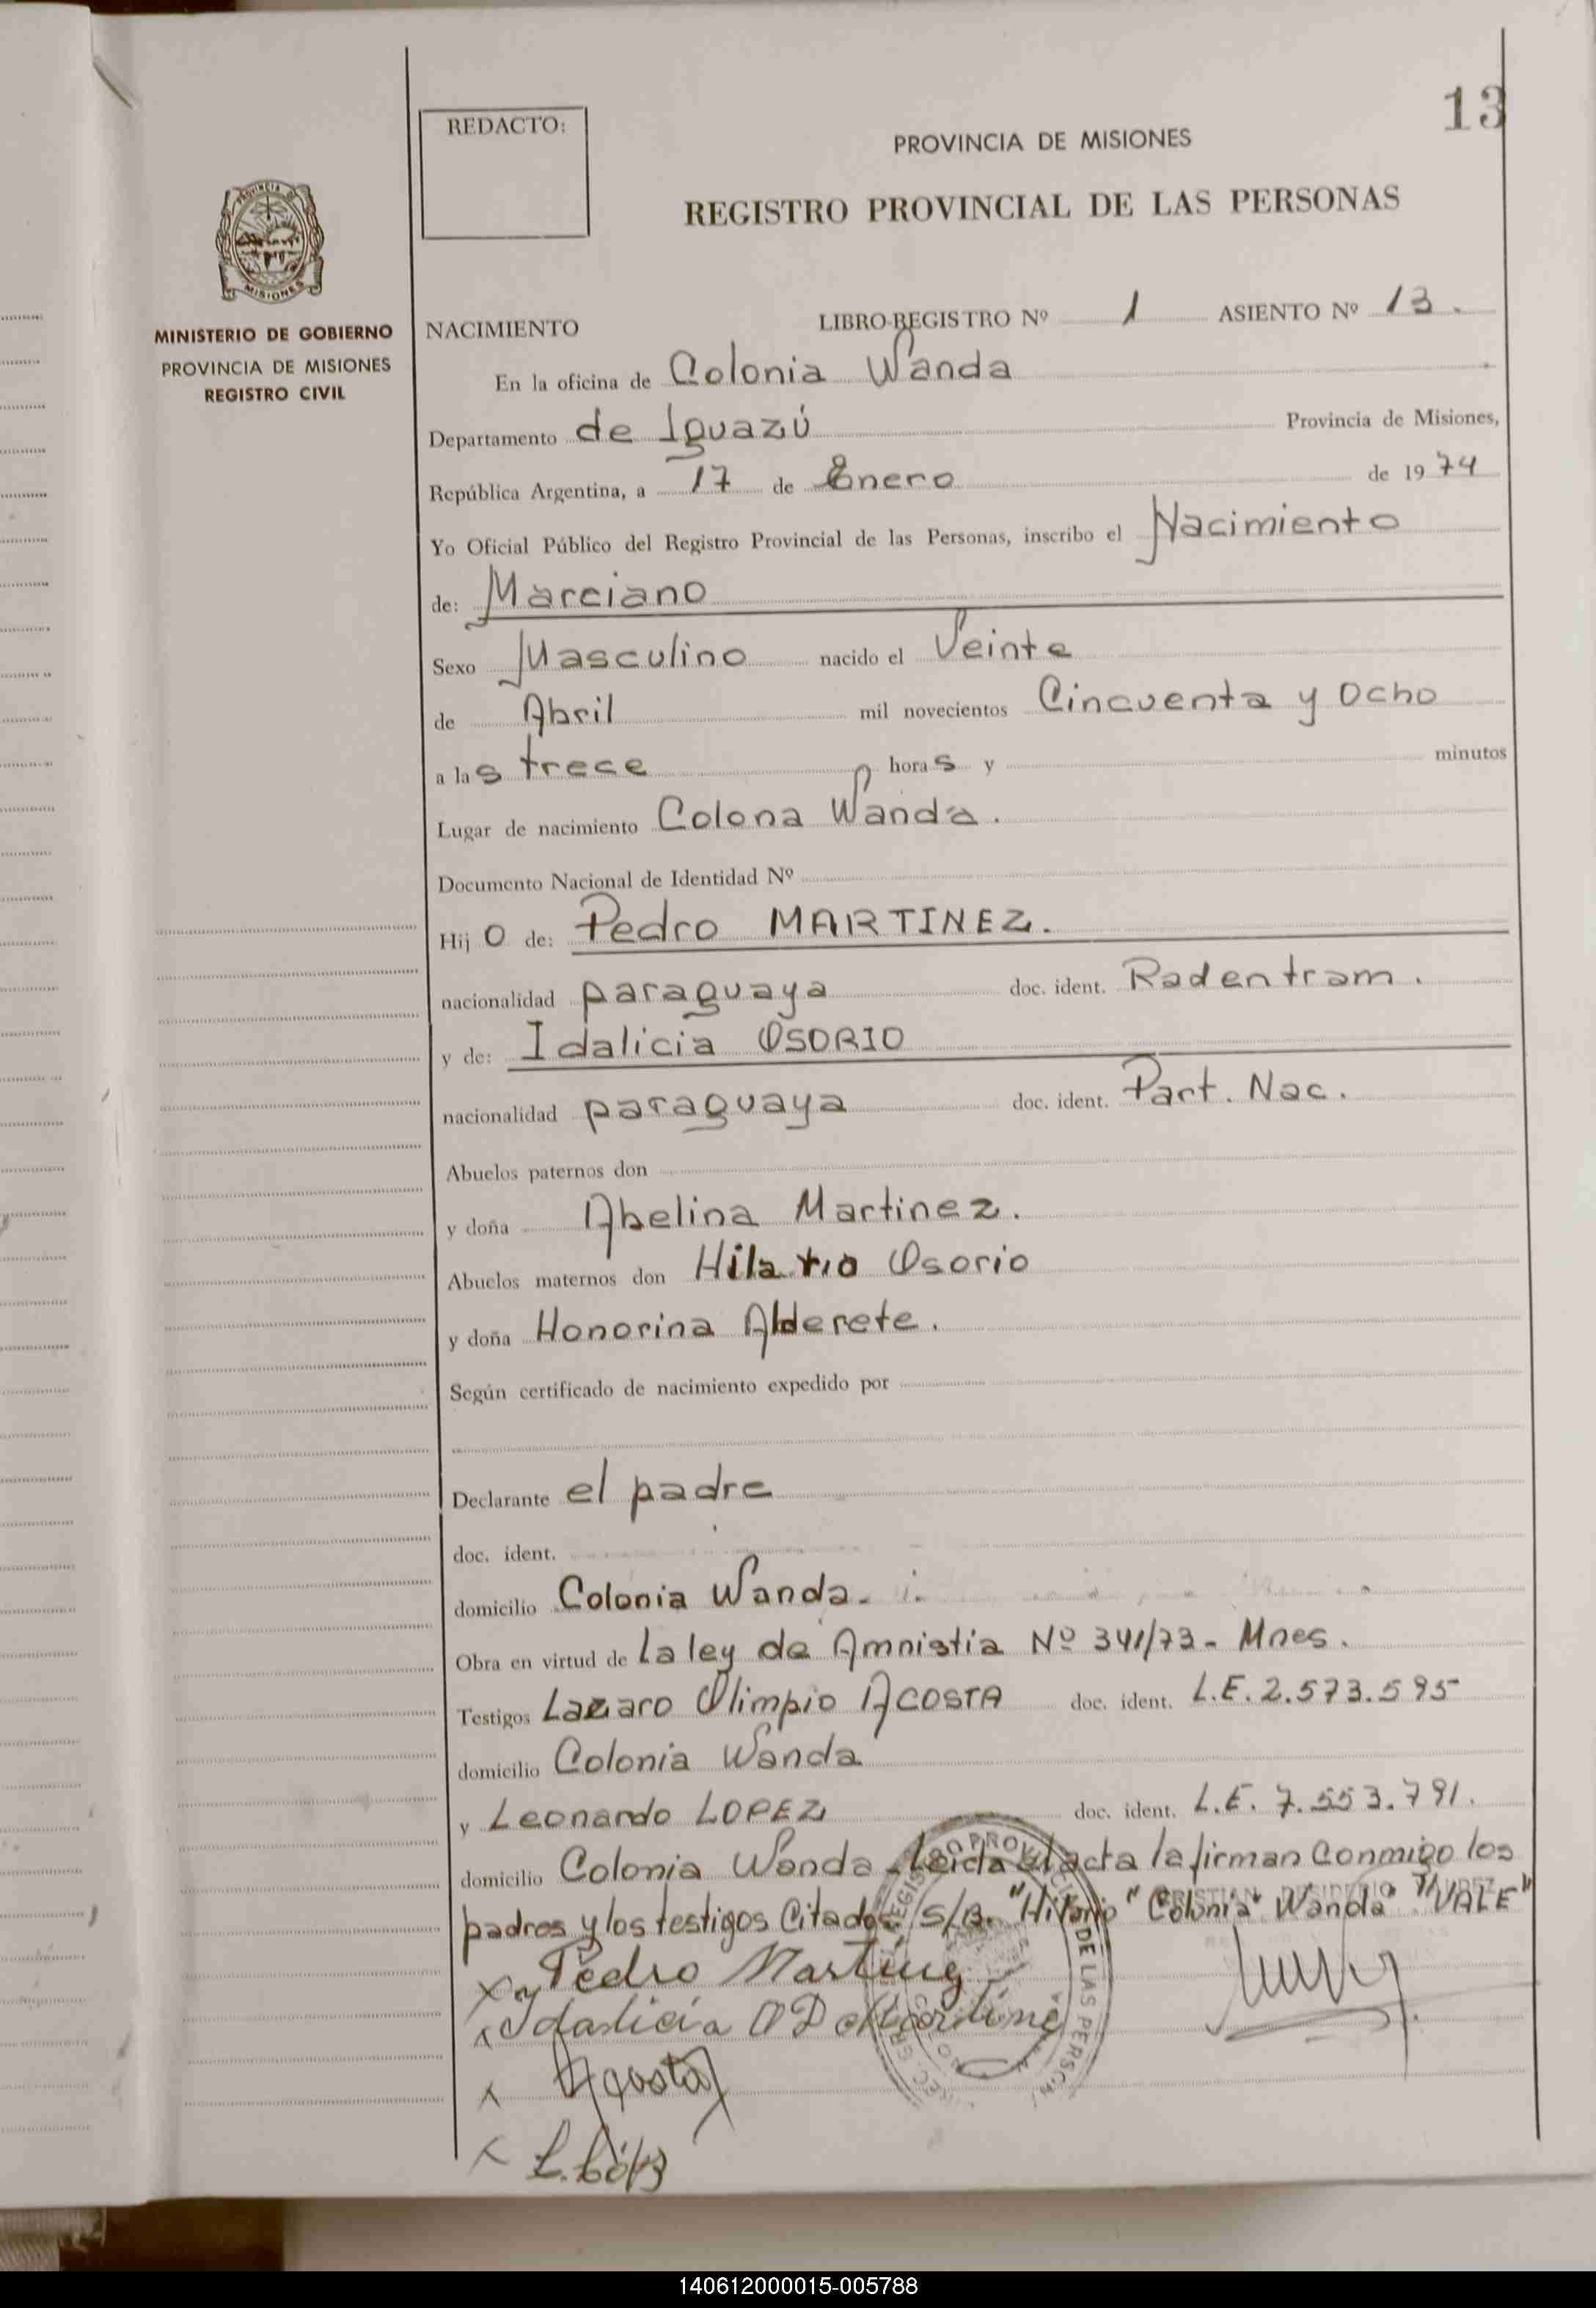 13
REDACTO:
PROVINCIA DE MISIONES
REGISTRO PROVINCIAL DE LAS PERSONAS
PROVINCIA DE
MISIONES
MINISTERIO DE GOBIERNO
PROVINCIA DE MISIONES
REGISTRO CIVIL
NACIMIENTO LIBRO-REGISTRO Nº 1 ASIENTO Nº 13.
En la oficina de Colonia Wanda
Departamento de Iguazú Provincia de Misiones,
República Argentina, a 17 de Enero de 1974
Yo Oficial Público del Registro Provincial de las Personas, inscribo el Nacimiento
de: Marciano
Sexo Masculino nacido el Veinte
de Abril mil novecientos Cincuenta y Ocho
a las trece horas y minutos
Lugar de nacimiento Colona Wanda.
Documento Nacional de Identidad Nº
Hijo de: Pedro MARTINEZ.
nacionalidad paraguaya doc. ident. Radentram.
y de: Idalicia OSORIO
nacionalidad paraguaya doc. ident. Part. Nac.
Abuelos paternos don
y doña Abelina Martinez.
Abuelos maternos don Hilario Osorio
y doña Honorina Alderete.
Según certificado de nacimiento expedido por
Declarante el padre
doc. ident.
domicilio Colonia Wanda.
Obra en virtud de La ley de Amnistia Nº 341/73- Mnes.
Testigos Lazaro Olimpio ACOSTA doc. ident. L.E. 2.573.595
domicilio Colonia Wanda
y Leonardo LOPEZ doc. ident. L.E. 7.553.791.
domicilio Colonia Wanda - Leida el acta la firman conmigo los
padres y los testigos Citados. S/B. "Hilario" "Colonia Wanda" "VALE"
x Pedro Martinez
x Idalicia O D de Martinez
x Acosta
x L. López
DE LAS PERSON
140612000015-005788